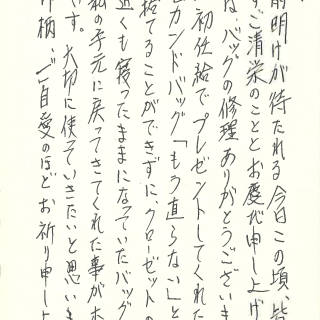 雨明けが待たれる今日この頃、皆
ずご清栄のこととお慶び申し上げ
は、バッグの修理ありがとうございま
初任給でプレゼントしてくれた
セカンドバッグ「もう直らない」と
捨てることができずに、クローゼットの
近くも寝ったままになっていたバッグ
私の手元に戻ってきてくれた事がホ
です。大切に使っていきたいと思いま
節柄、ご自愛のほどお祈り申し上